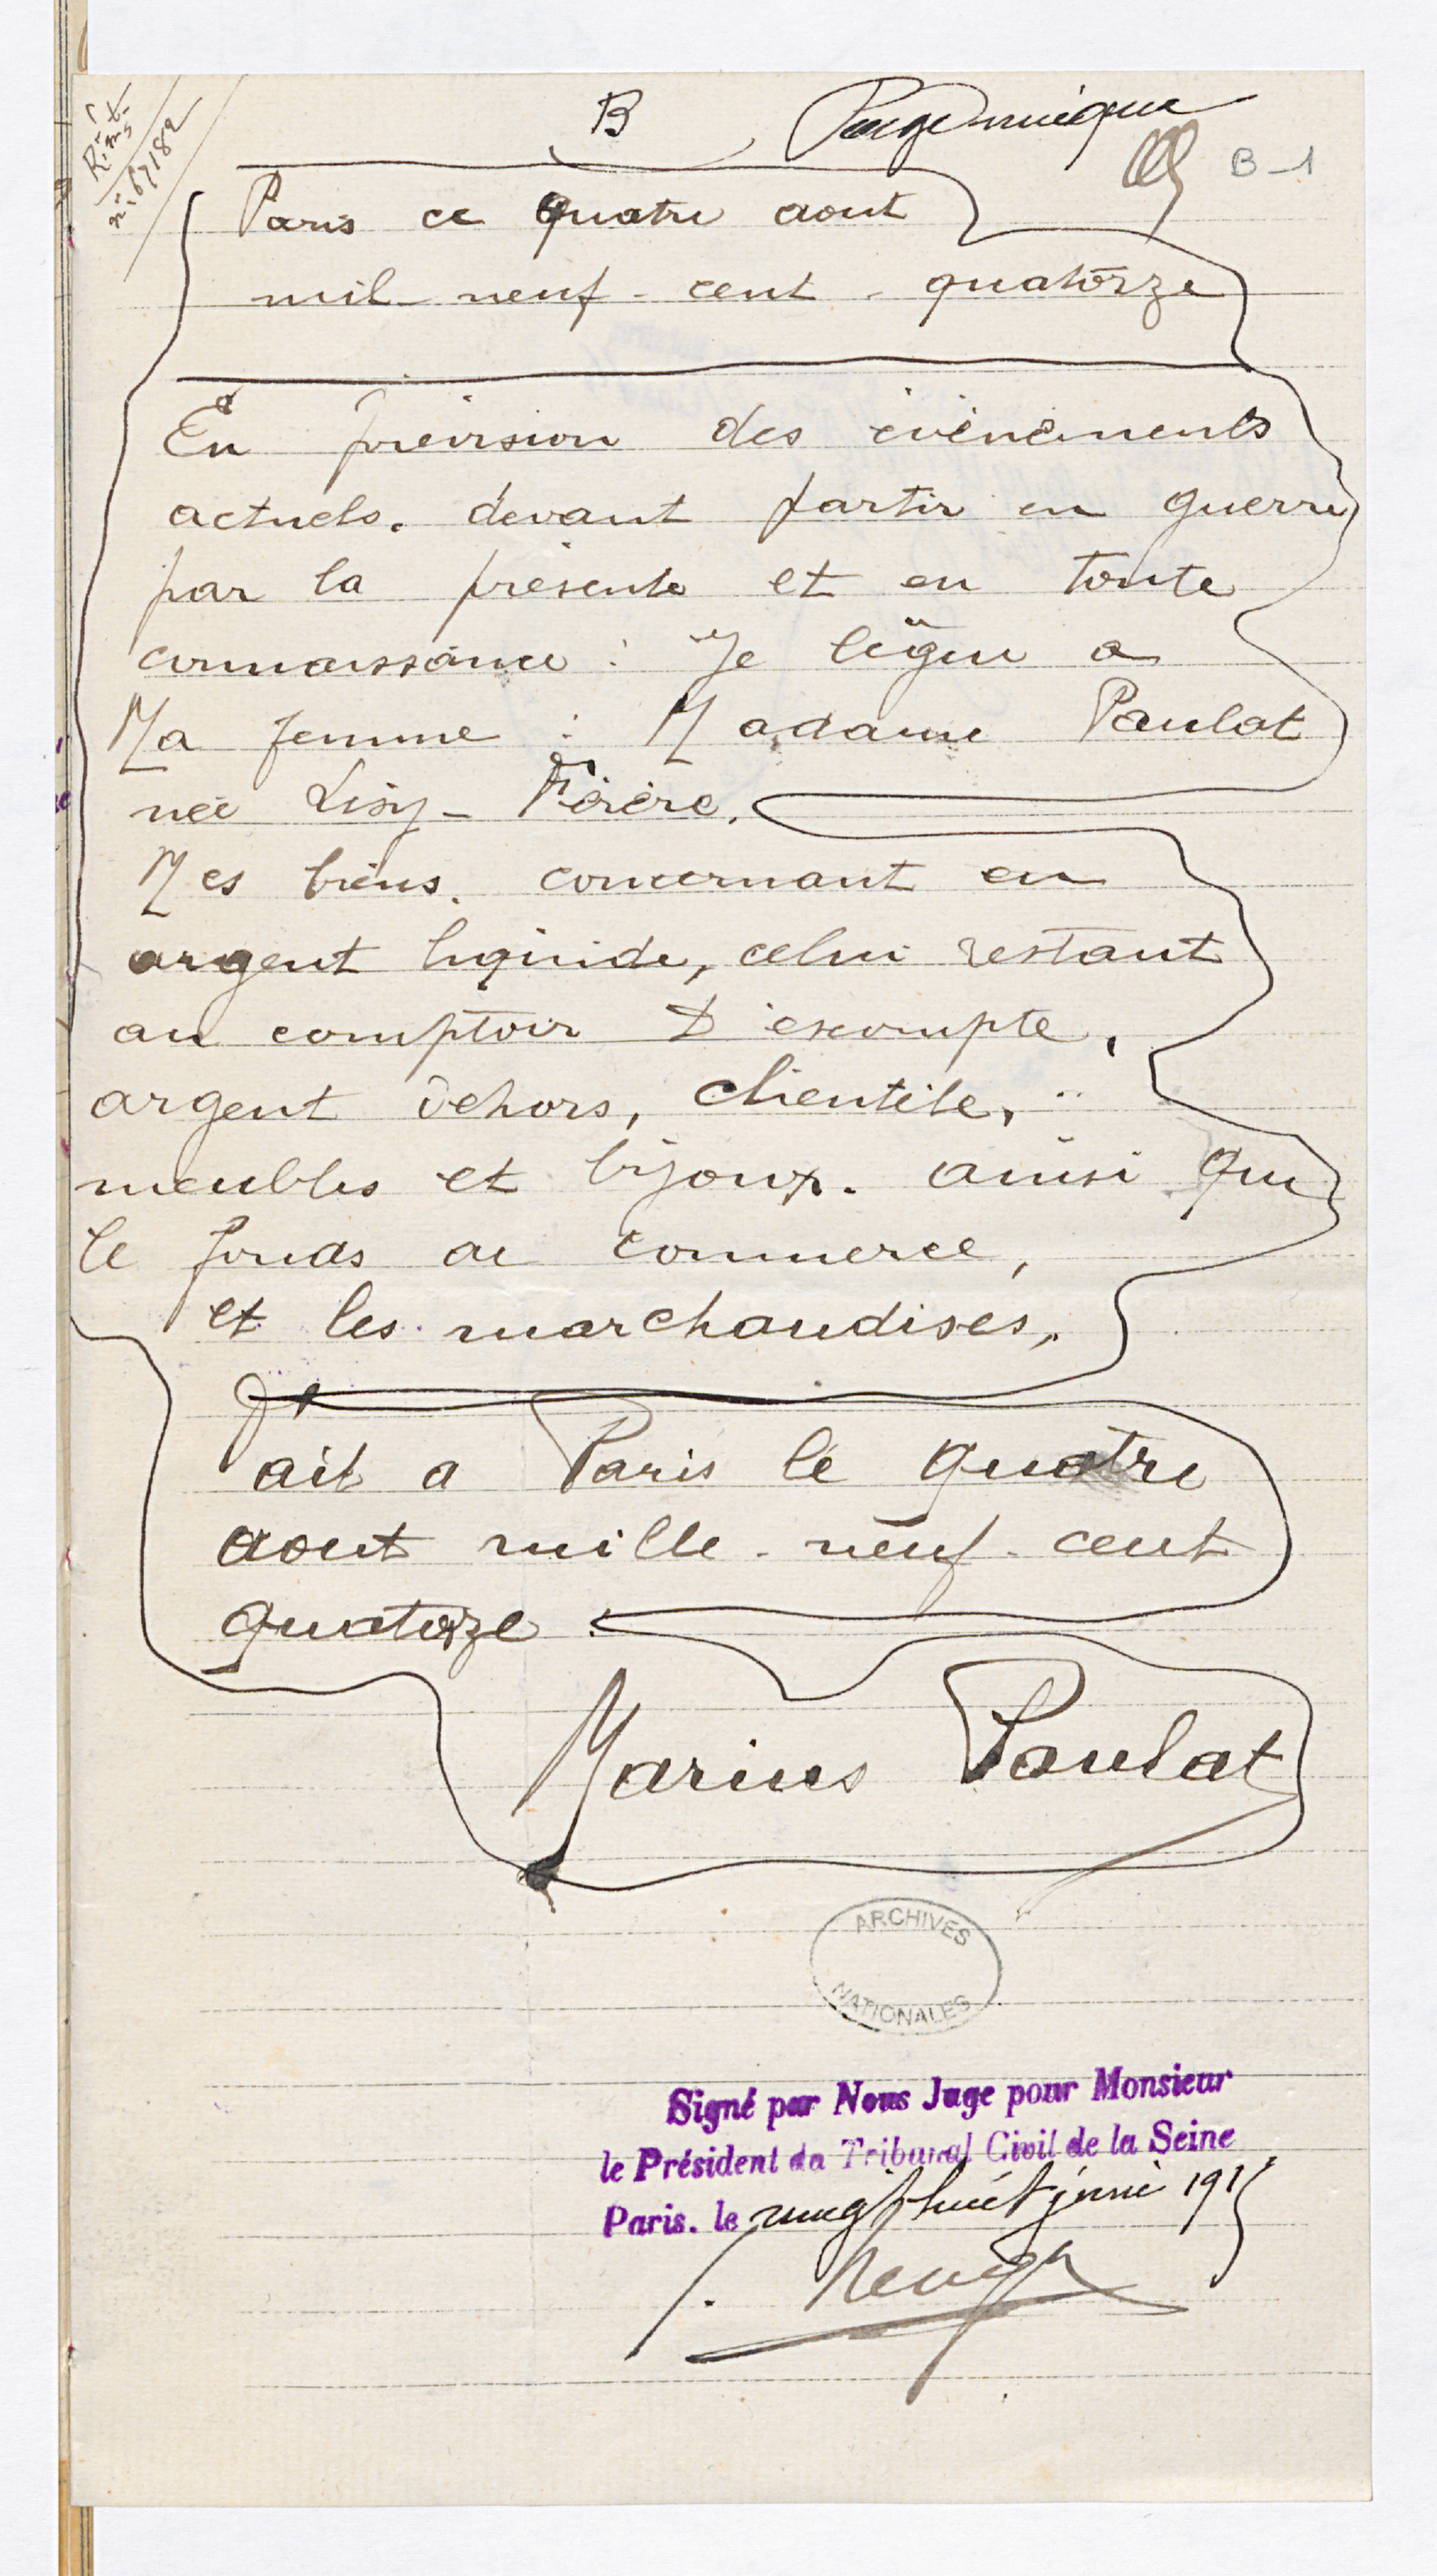 B Page unique
B-1
n° 67182
Paris ce quatre aout
mil-neuf-cent-quatorze
En prévision des événements
actuels. devant partir en guerre
par la présente et en toute
connaissance : Je lègue a
Ma femme : Madame Paulat
née Lisy-
Mes biens. concernant en
argent liquide, celui restant
au comptoir D'escompte,
argent dehors, clientèle,
meubles et bijoux. ainsi que
le fonds de commerce,
et les marchandises,
Fait a Paris le quatre
aout mille-neuf-cent
quatorze.
Marius Paulat
ARCHIVES
NATIONALES
Signé par Nous Juge pour Monsieur
le Président du Tribunal Civil de la Seine
Paris. le vingt huit juin 1915